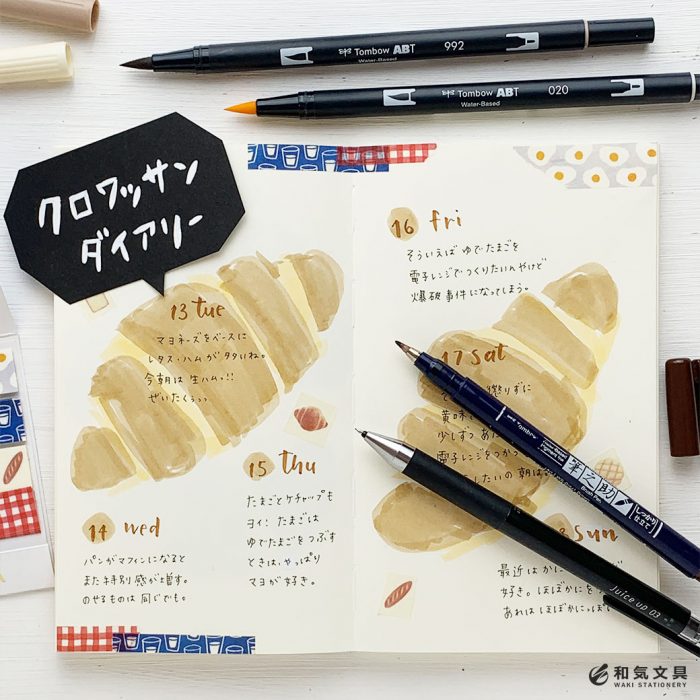 Tombow ABT 992
Water-Based
Tombow ABT 020
Water-Based
クロワッサン
ダイアリー
13 tue
マヨネーズをベースに
レタス・ハムがタタいね。
今朝は生ハムっ!!
ぜいたくぅっ
14 wed
パンがマフィンになると
また特別感が増す。
のせるものは同じでも。
15 Thu
たまごとケチャップも
ヨイ! たまごは
ゆでたまごをつぶす
ときは、やっぱり
マヨが好き。
16 fri
そういえばゆでたまごを
電子レンジでつくりたいんやけど
爆破事件になってしまう。
17 sat
懲りずに
黄味
少しずつあ
電子レンジをつかっ
したいの朝は
sun
最近はかに
好き。ほぼかにを
あれはほぼかにっぽい
Tombow
筆之助
しっかり
仕立て
Juice up 03
和気文具
WAKI STATIONERY